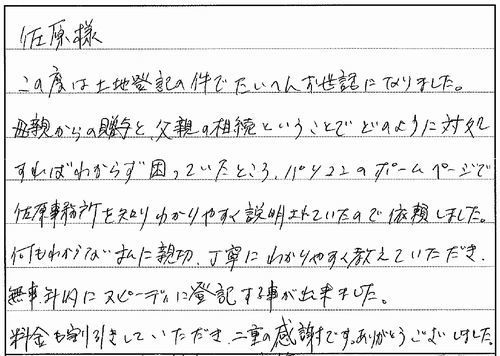 佐原様
この度は土地登記の件でたいへんお世話になりました。
母親からの贈与と、父親の相続ということでどのように対処
すればわからず困っていたところ、パソコンのホームページで
佐原事務所を知りわかりやすく説明されていたので依頼しました。
何もわからない私に親切、丁寧にわかりやすく教えていただき、
無事年内にスピーディに登記する事が出来ました。
料金も割り引きしていただき、二重の感謝です。ありがとうございました。